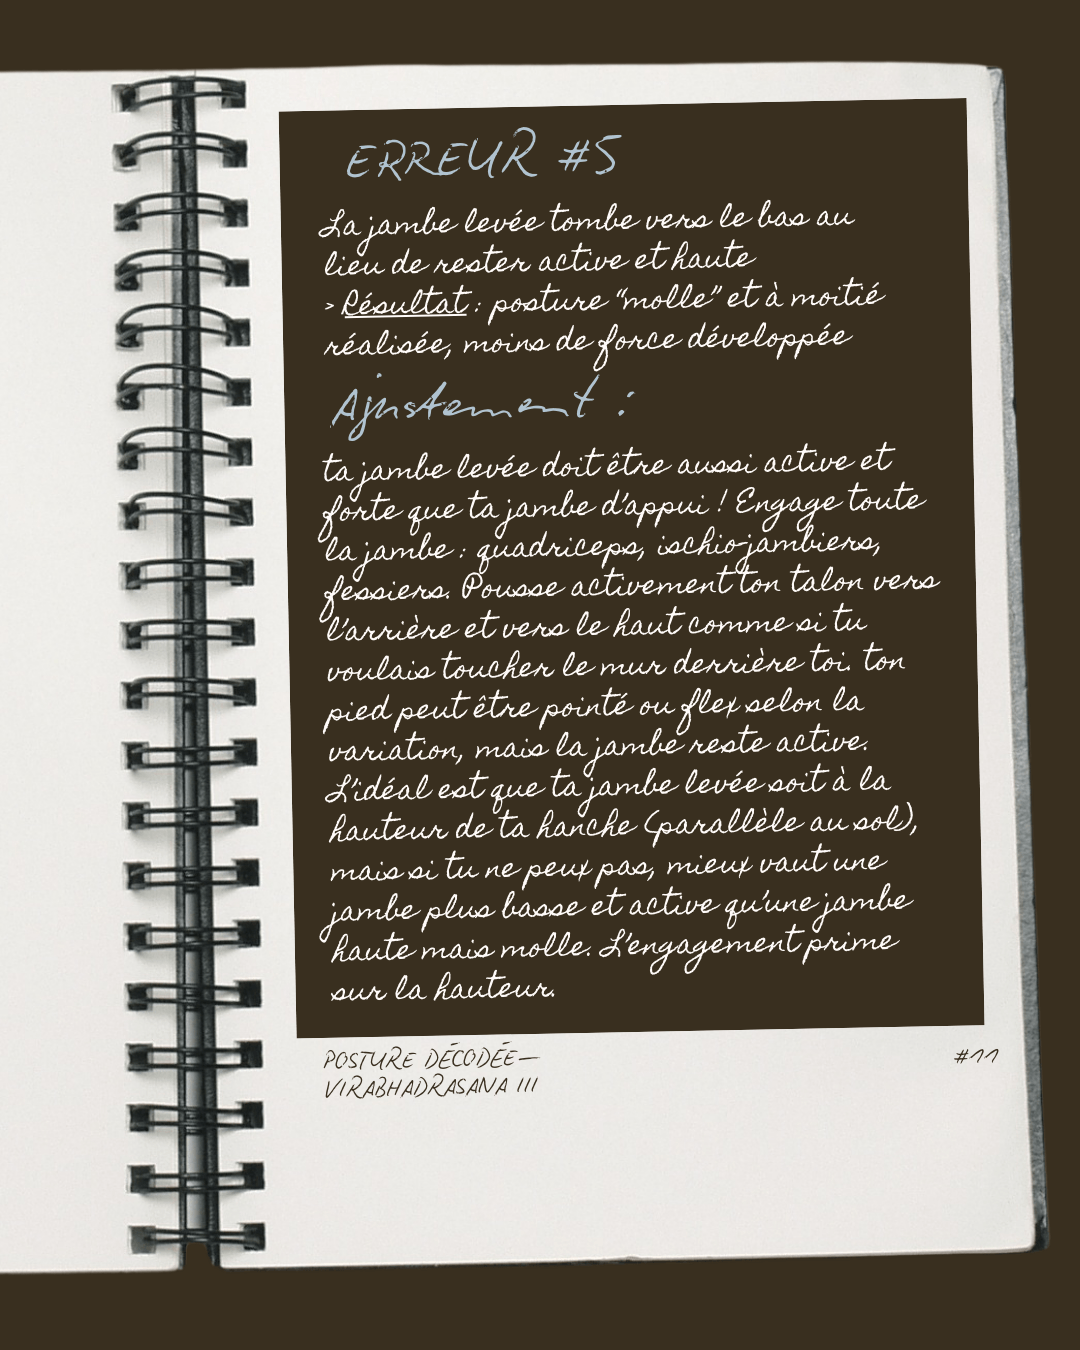 ERREUR #5
La jambe levée tombe vers le bas au
lieu de rester active et haute
> Résultat : posture "molle" et à moitié
réalisée, moins de force développée
Ajustement :
ta jambe levée doit être aussi active et
forte que ta jambe d'appui ! Engage toute
la jambe : quadriceps, ischio-jambiers,
fessiers. Pousse activement ton talon vers
l'arrière et vers le haut comme si tu
voulais toucher le mur derrière toi. ton
pied peut être pointé ou flex selon la
variation, mais la jambe reste active.
L'idéal est que ta jambe levée soit à la
hauteur de ta hanche (parallèle au sol),
mais si tu ne peux pas, mieux vaut une
jambe plus basse et active qu'une jambe
haute mais molle. L'engagement prime
sur la hauteur.
POSTURE DÉCODÉE—
VIRABHADRASANA III
#11